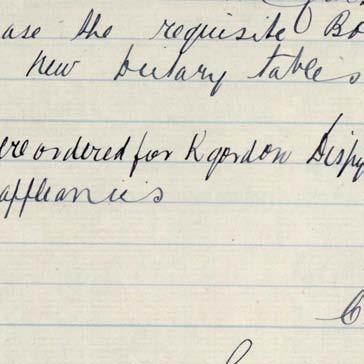 ase the requisite Bo
new dietary tables
ere ordered for K gordon Dispy
appliances